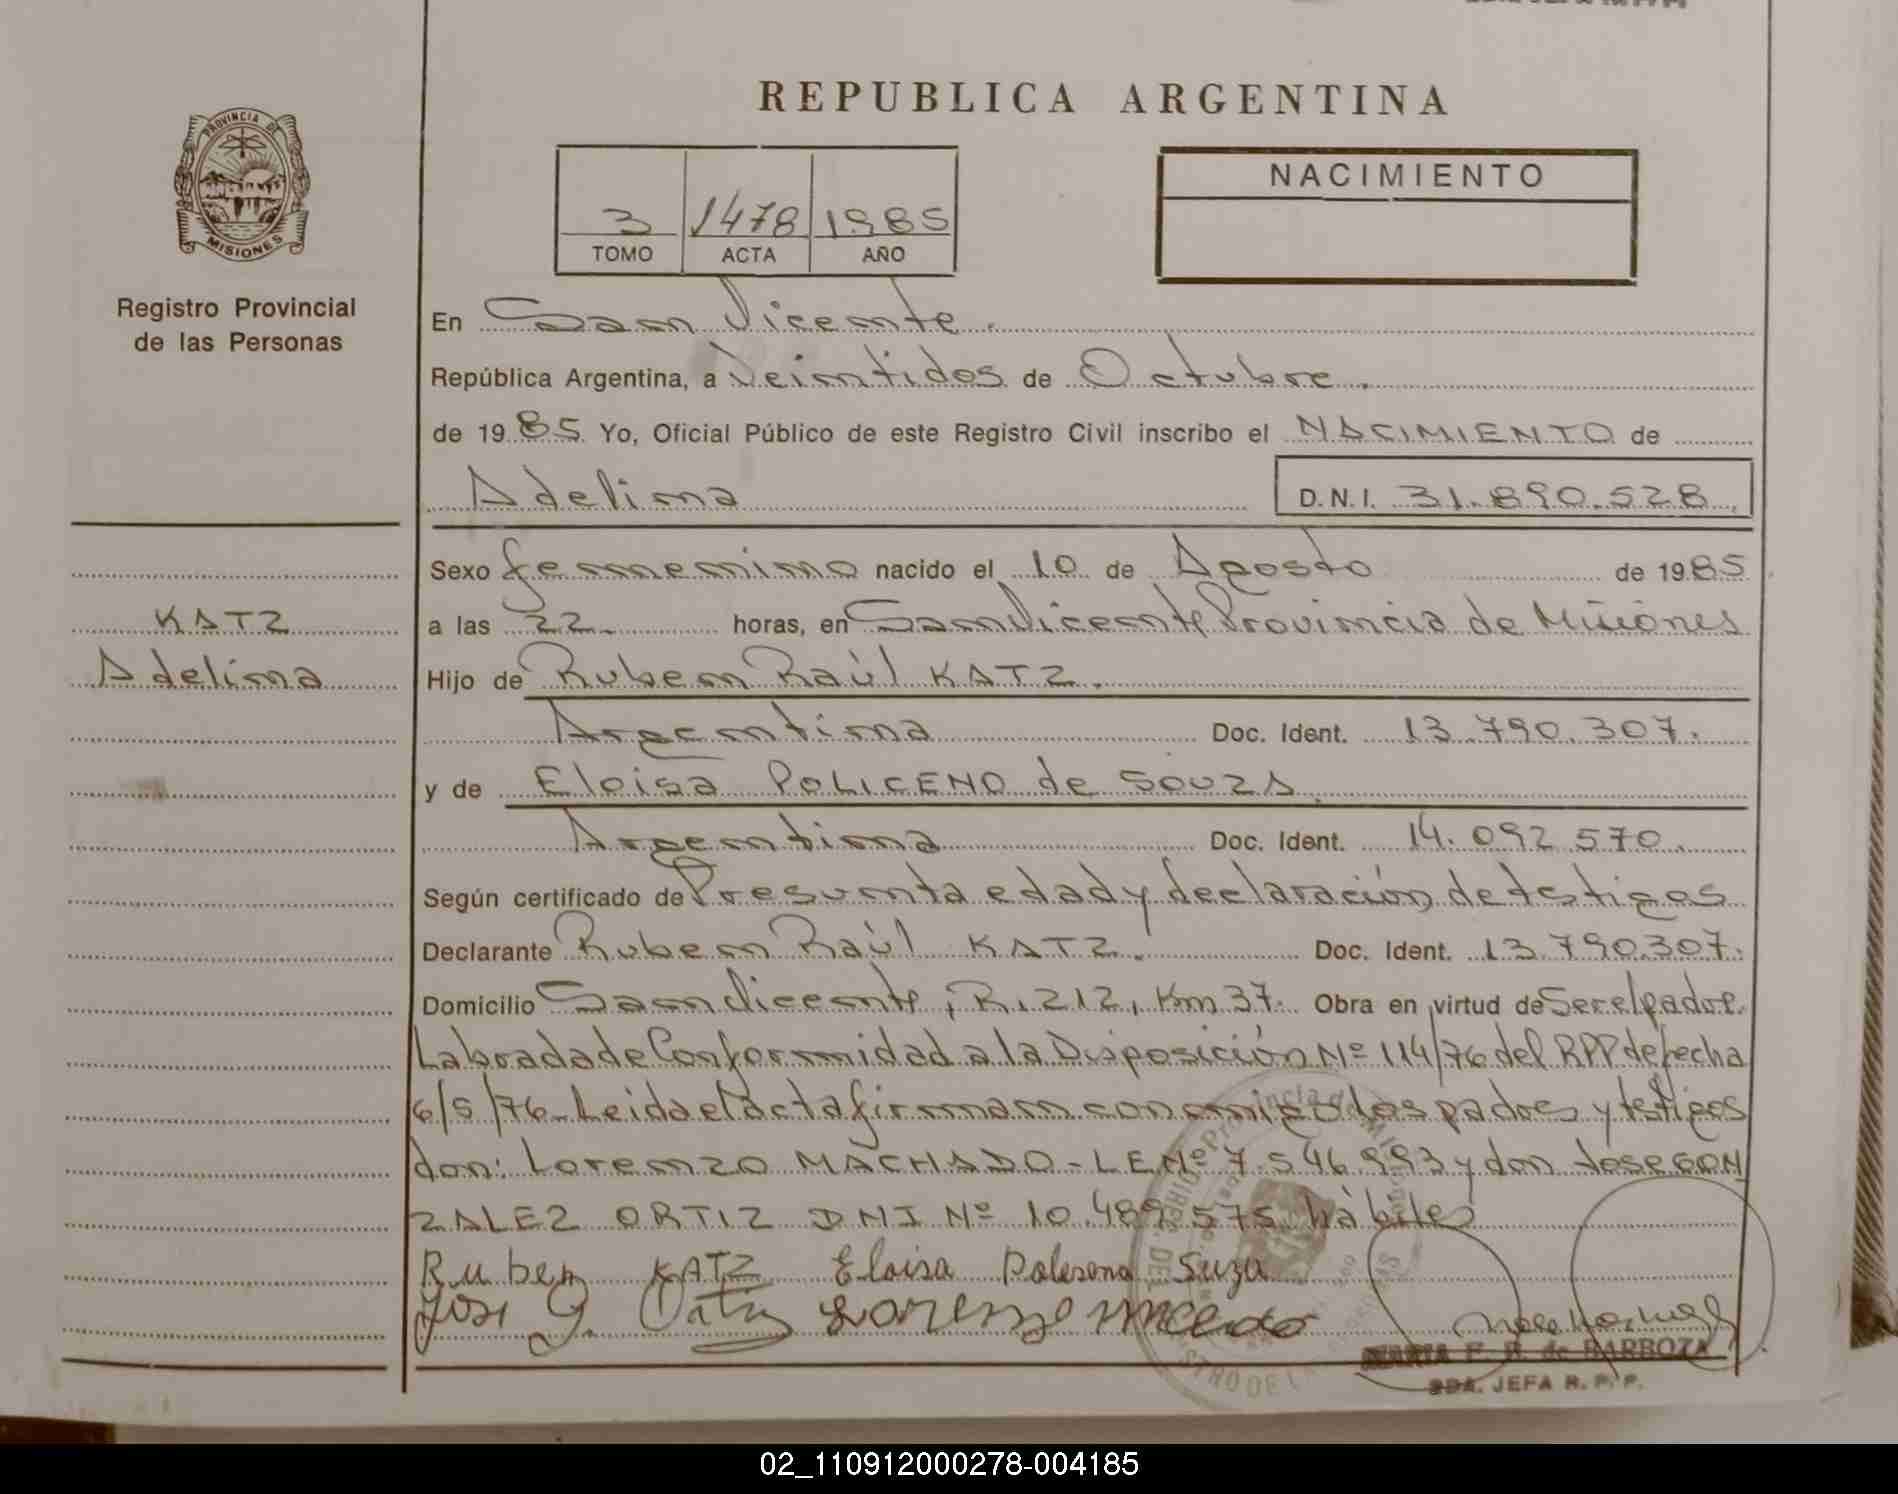 REPUBLICA ARGENTINA
PROVINCIA DE
MISIONES
Registro Provincial
de las Personas
3 1478 1985
TOMO ACTA AÑO
NACIMIENTO
En San Vicente.
República Argentina, a Veintidos de Octubre.
de 1985 Yo, Oficial Público de este Registro Civil inscribo el NACIMIENTO de
Adelina D.N.I. 31.890.528
Sexo femenino nacido el 10 de Agosto de 1985
a las 22. horas, en San Vicente Provincia de Misiones
KATZ
Adelina
Hijo de Ruben Raúl KATZ.
Argentina Doc. Ident. 13.790.307.
y de Eloisa POLICENO de SOUZA
Argentina Doc. Ident. 14.092.570.
Según certificado de Presunta edad y declaración de testigos
Declarante Ruben Raúl KATZ. Doc. Ident. 13.790.307.
Domicilio San Vicente, R. 212, Km 37. Obra en virtud de Ser el padre.
Labrada de Conformidad a la Disposición Nº 114/76 del RPP de fecha
6/5/76. Leida el acta firman conmigo los padres y testigos
don: Lorenzo MACHADO - LE Nº 7.546.993 y don Jose GON
ZALEZ ORTIZ DNI Nº 10.489.575 hàbiles
Ruben KATZ Eloisa Polesena Suza
Jose G. Ortiz Lorenzo
MARIA F. R. de BARBOZA
2DA. JEFA R. P. P.
02_110912000278-004185